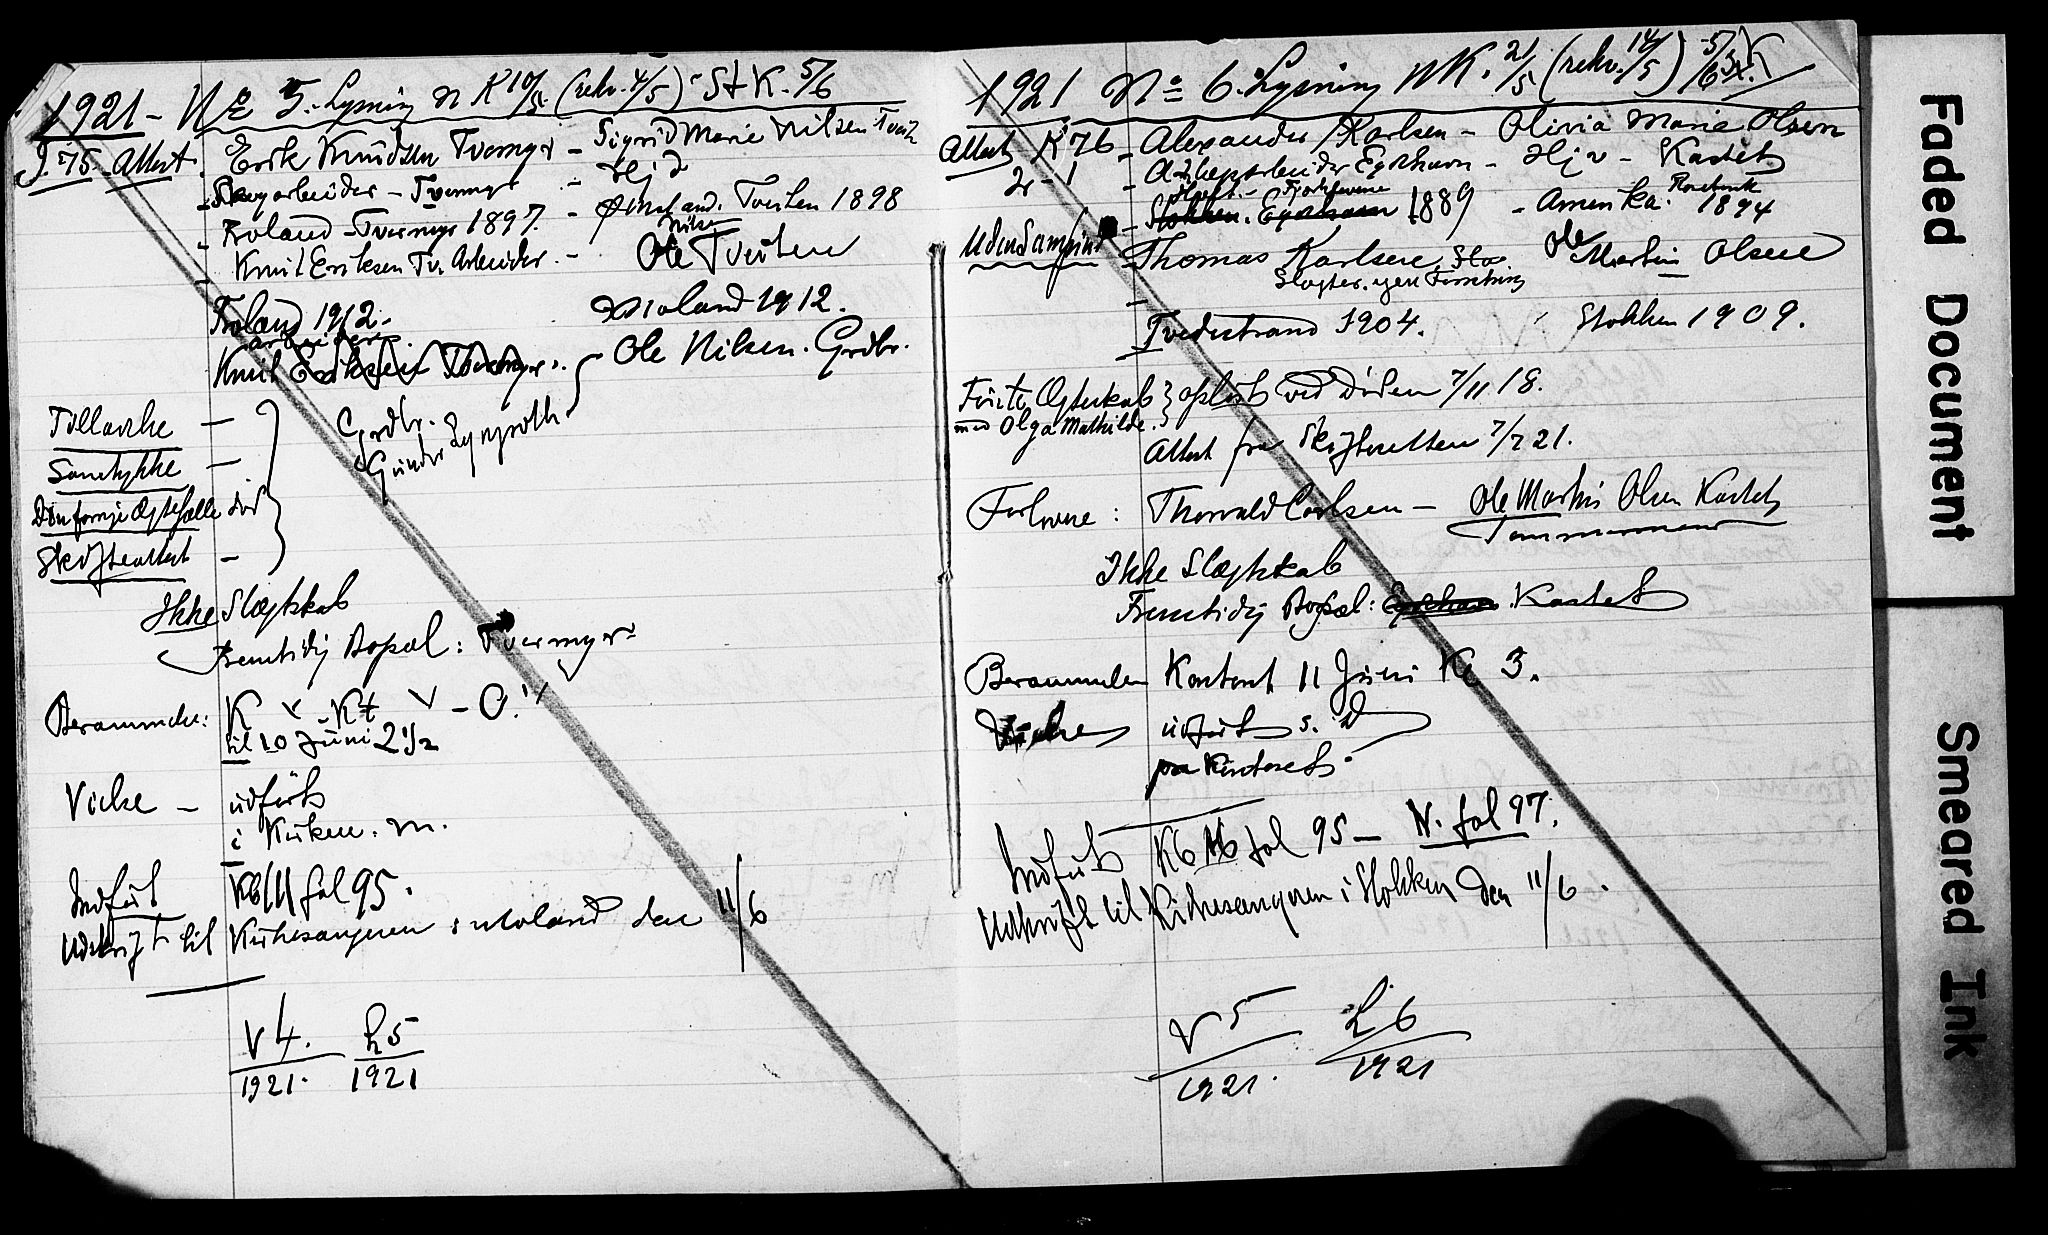 1921 - No 5. Lysning n K 10/5. (rekv. 4/5) - St K. 5/6
J. 75. Attest. Erik Knudsen Tvermyr - Sigrid Marie Nilsen Tveit
Skogarbeider - Tvermyr - Hjd
Froland - Tvermyr 1897. - Tveiten 1898
Knut Eriksen Tv. Arbeider. - Ole Tveiten
Nilsen
Froland 1912. Moland 1912.
arbeider
Knut Eriksen Tvermyr. Ole Nilsen. Grdbr.
Tillavshe - Grdbr.
Samtykke - Gunder
Den forrige Ægtefælle død
Skifteattest -
Ikke Slægtskab
Fremtidig Bopæl: Tvermyr
Berammelse: K - Kt - O.
til 10 Juni 2 1/2
Vielse - udført
i Kirken. M.
Indført Kb 11 fol 95.
Udskrift til Kirkesangeren i Moland den 11/6
V 4. L 5
1921. 1921
1921 No 6. Lysning n K. 21/5 (rekv. 14/5) 5/6 St. K
Attest K 76 - Alexander Karlsen - Olivia Marie Olsen
2r - 1 - Eydehavn - Hjv - Kastet
Stokken. Eydehavn 1889 - Amerika. 1894
Thomas Karlsen Ole Martin Olsen
Slagter. egen Forretning
Tvedestrand 1904. Stokken 1909.
Første Ægteskab } opløst ved Døden 7/11 18.
med Olga Mathilde.
Attest fra Skifteretten 7/2 21.
Forlovere: Thorvald Carlsen - Ole Martin Olsen Kastet
Tømmermand
Ikke Slægtskab
Fremtidig Bopæl: Eydehavn. Kastet
Berammelse Kontoret 11 Juni Kl 3.
Vielse udført s. D
paa Kontoret.
Indført Kb 16 fol 95 - N. fol 97.
Udskrift til Kirkesangeren i Stokken den 11/6.
V 5 L 6
1921. 1921
Faded Document
Smeared Ink